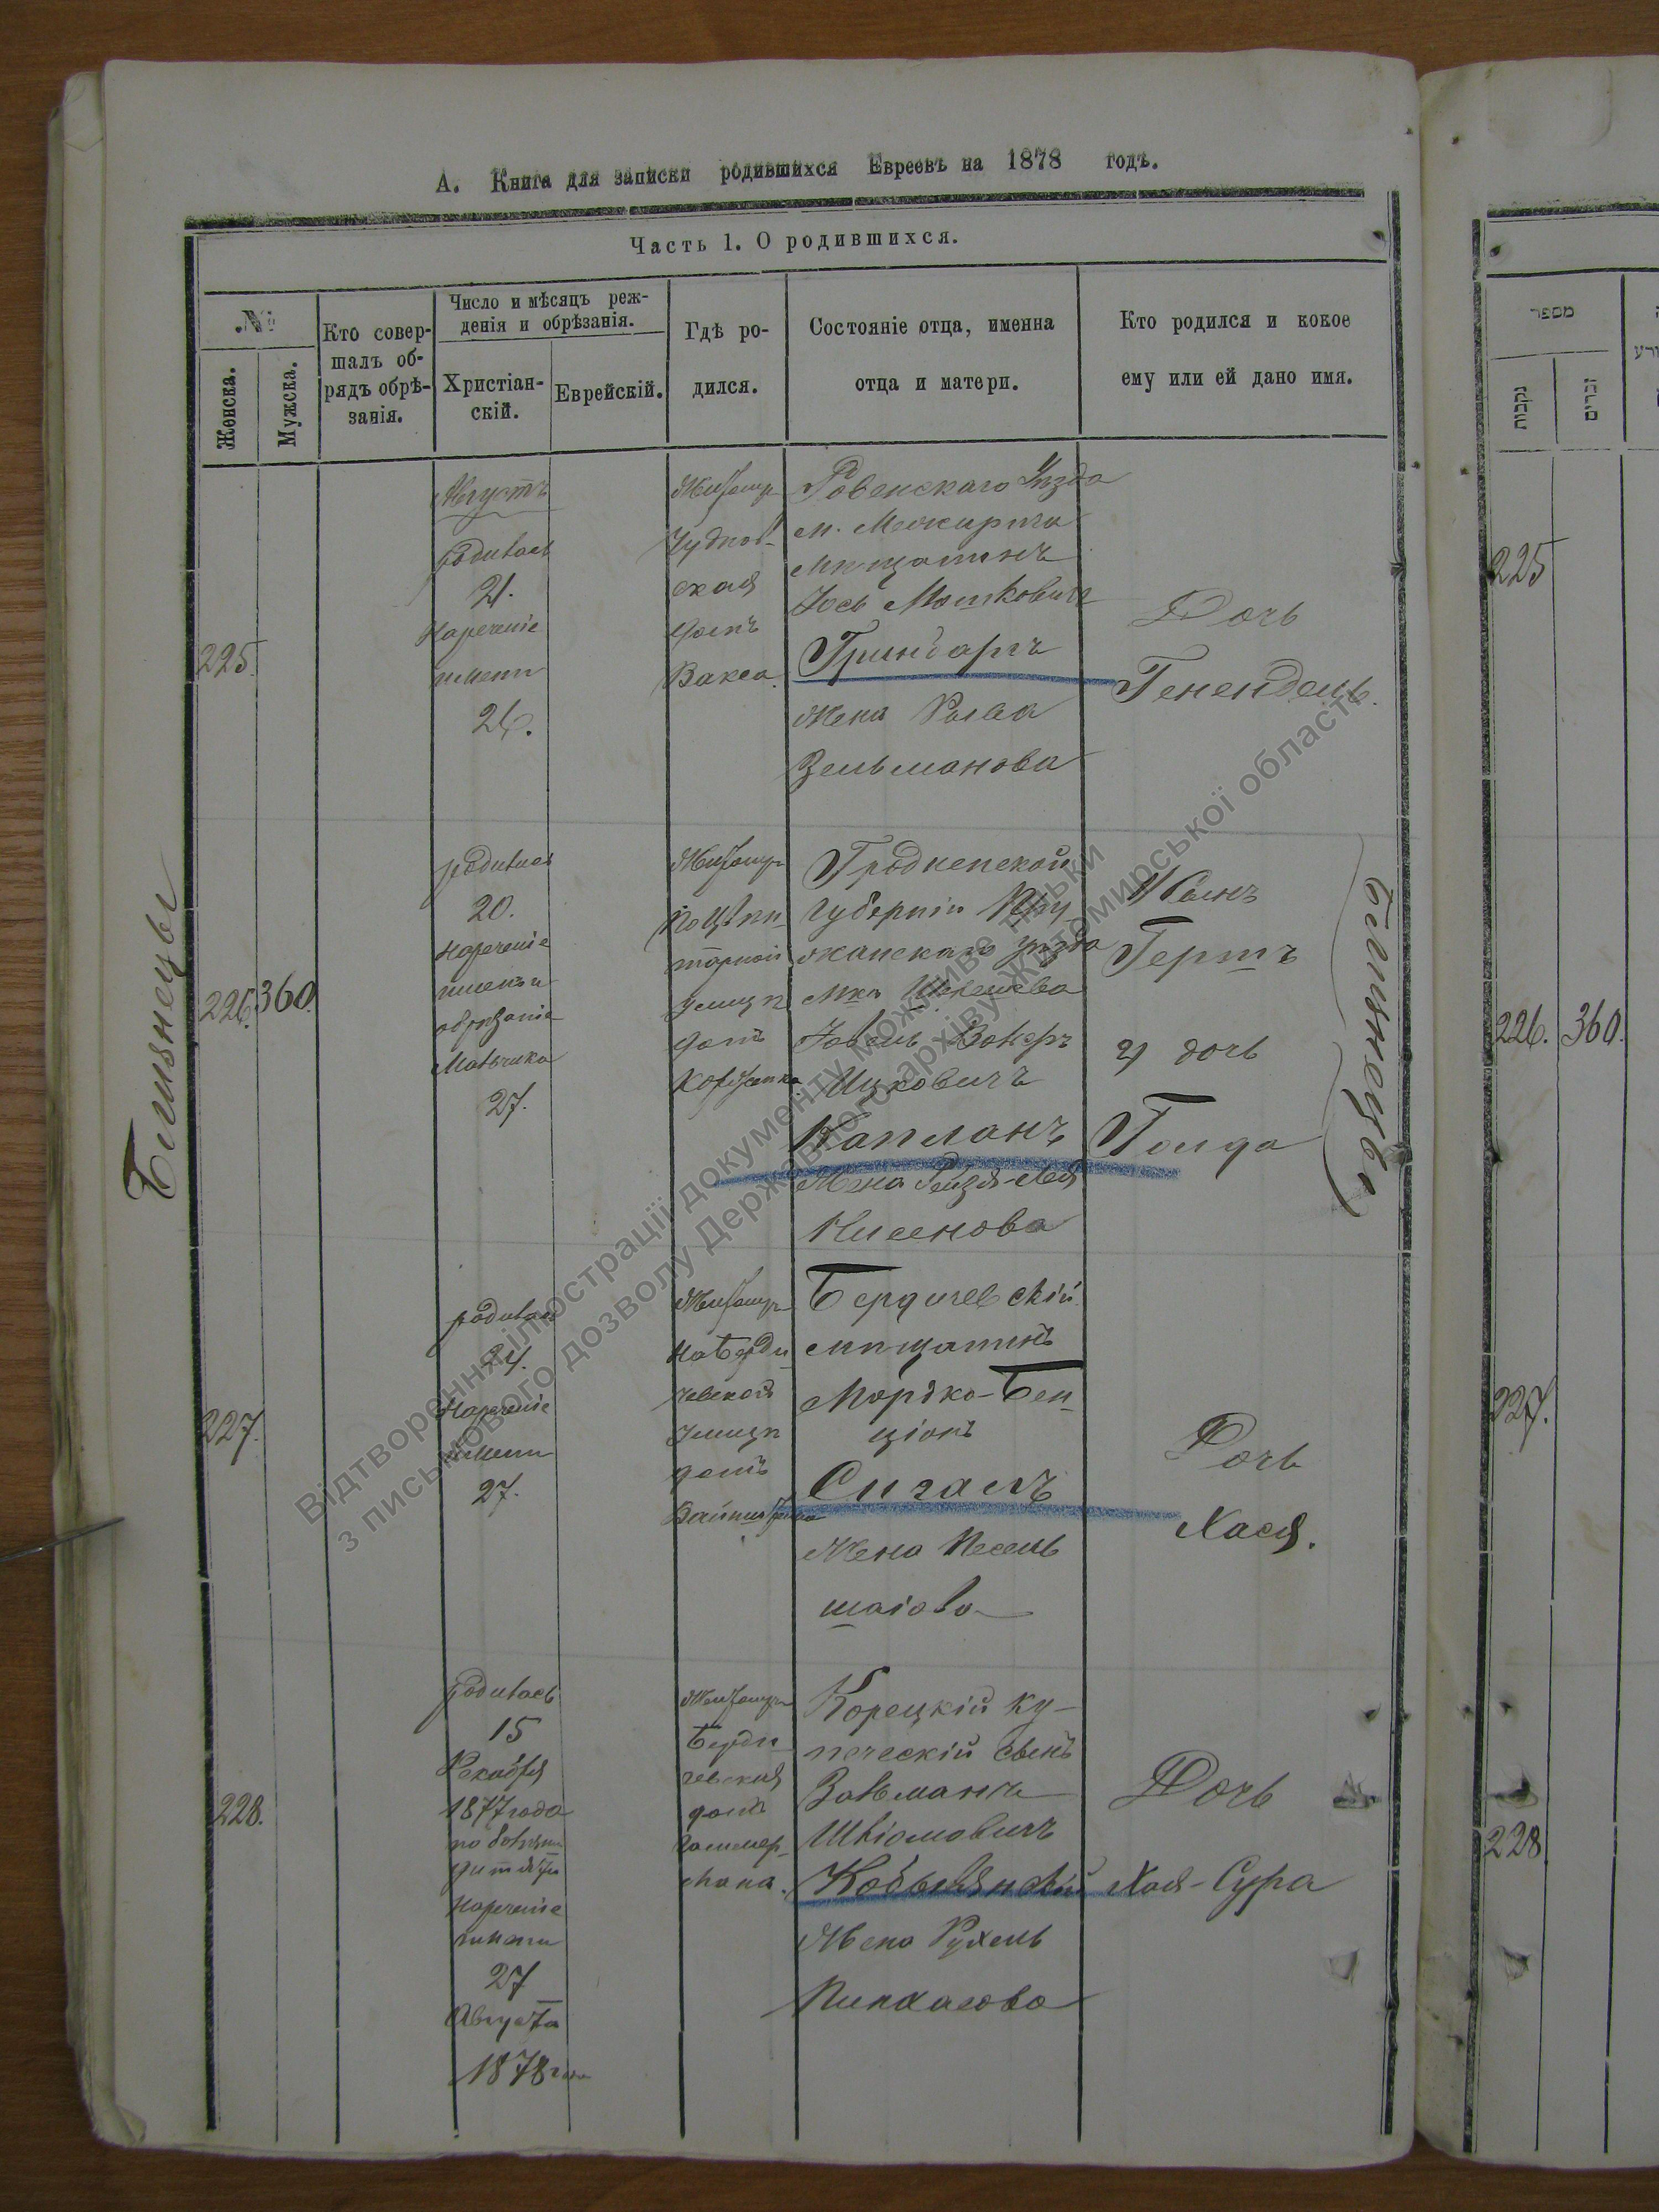 А. Книга для записки родившихся Евреевъ на 1878 годъ.
Часть 1. О родившихся.
№
Женска.
Мужска.
Кто совер-
шалъ об-
рядъ обрѣ-
занія.
Число и мѣсяцъ реж-
денія и обрѣзанія.
Христіан-
скій.
Еврейскій.
Гдѣ ро-
дился.
Состояніе отца, именна
отца и матери.
Кто родился и кокое
ему или ей дано имя.
225.
Августъ
родилась
21.
Нареченіе
имени
26.
Житомир
Чуднов-
ская
домъ
Вакса.
Ровенскаго Уѣзда
м. Межирича
мѣщанинъ
Іось Мошковичъ
Гриндаргъ
жена
Зельманова
Дочь
Генендель.
Близнецы
226. 360.
родилась
20.
Нареченіе
имени и
обрѣзаніе
Мальчика
27.
Житомир
по
торной
улицѣ
домъ
Гродненской
губерніи Пру-
жанскаго уѣзда
Мка Шерешева
Ицковичъ
Капланъ
жена Рейзя-Лея
Нисенова
1) Сынъ
Гершъ
2) дочь
Голда
Близнецы
227.
родилась
24.
Нареченіе
имени
27.
Житомир
на Берди-
чевской
Улицѣ
домъ
Бердичевскій
мѣщанинъ
Мордко-Бен-
ціонъ
Сигалъ
жена Песель
шаіова
Дочь
Хася.
228.
родилась
15
Декабря
1877 года
по болѣзни
дитяти
Нареченіе
имени
27
Августа
1878 года
Житомир
Берди-
чевская
домъ
Корецкій ку-
печескій сынъ
Зельманъ
Шліомовичъ
Кобылянскій
жена Рухель
Пинхасова
Дочь
Хая-Сура
מספר
נקבות
זכרים
225
226. 360.
227.
228
Відтворення ілюстрації документу можливе тільки
з письмового дозволу Державного архіву Житомирської області